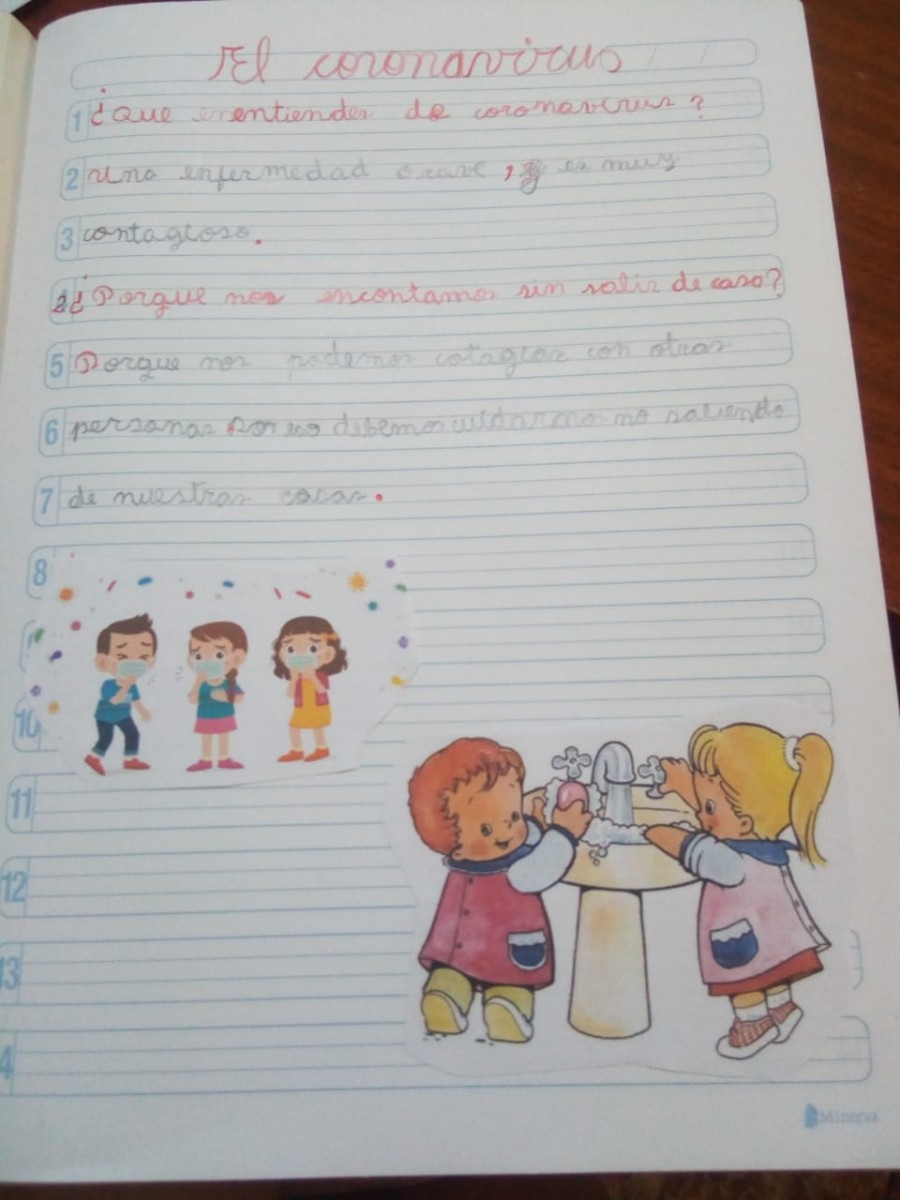 El coronavirus
1 ¿Que enentiendes de coronavirus?
2 una enfermedad grave, y es muy
3 contagioso.
2¿Porque nos encontamos sin salir de casa?
5 Porque nos podemos cotagiar con otras
6 personas por eso debemos cuidarnos no saliendo
7 de nuestras casas.
8
10
11
12
13
4
Minerva